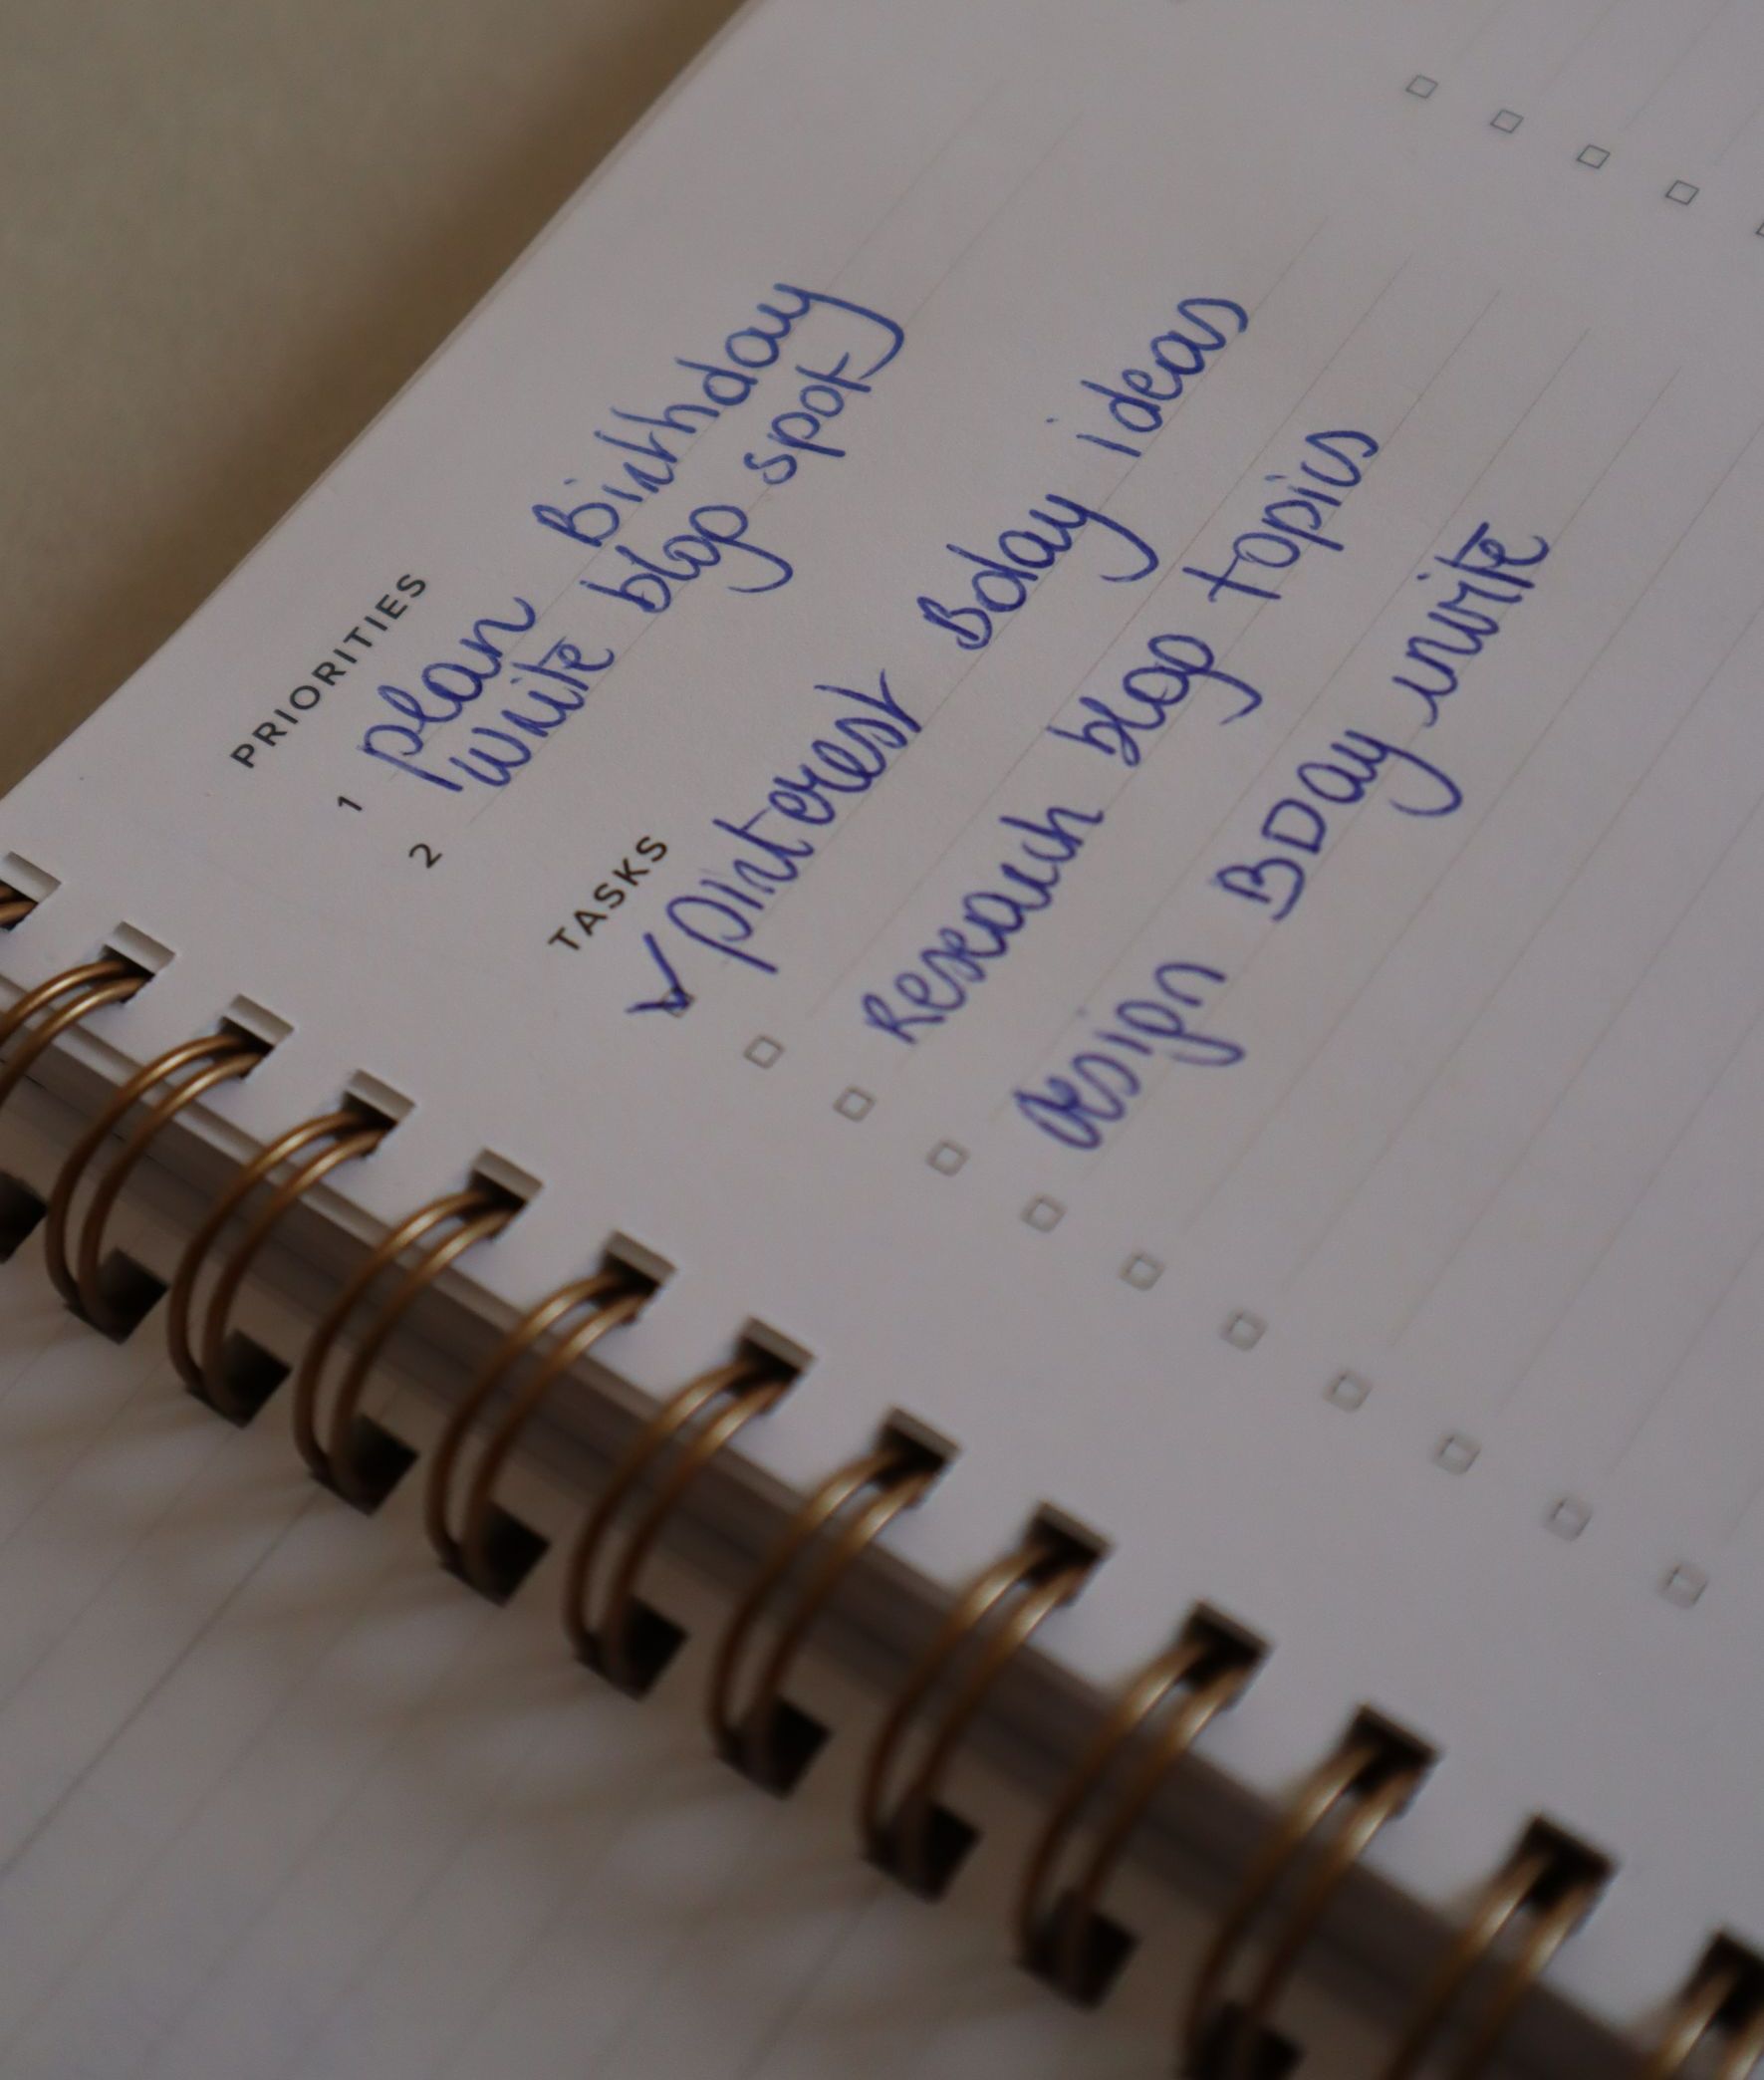 PRIORITIES
1 plan Birthday
2 write blog spot
TASKS
✓ pinterest Bday ideas
Research blog topics
Design BDay invite